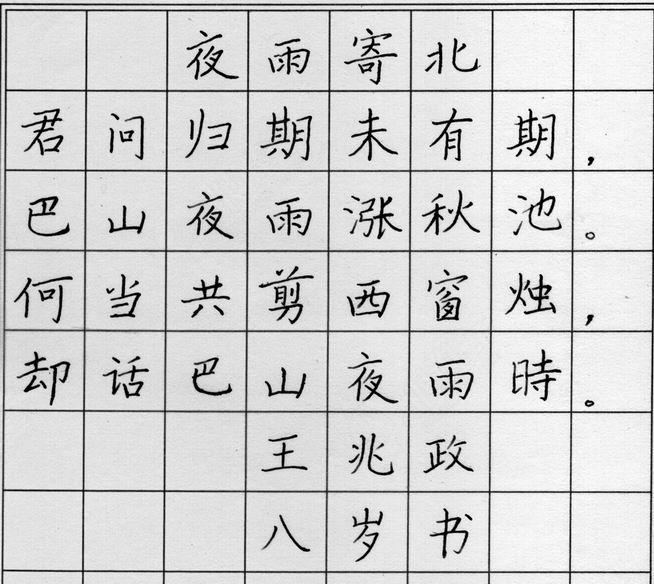 夜雨寄北
君问归期未有期，
巴山夜雨涨秋池。
何当共剪西窗烛，
却话巴山夜雨時。
王兆政
八岁书